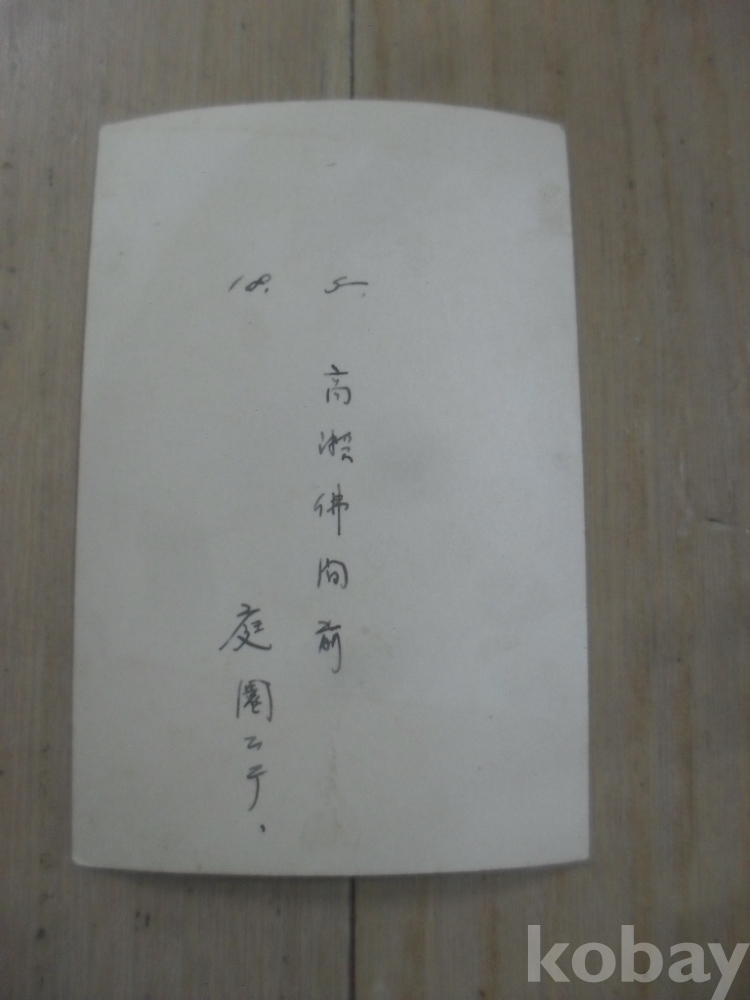 18. 5.
高瀬佛間前
庭園ニテ、
kobay